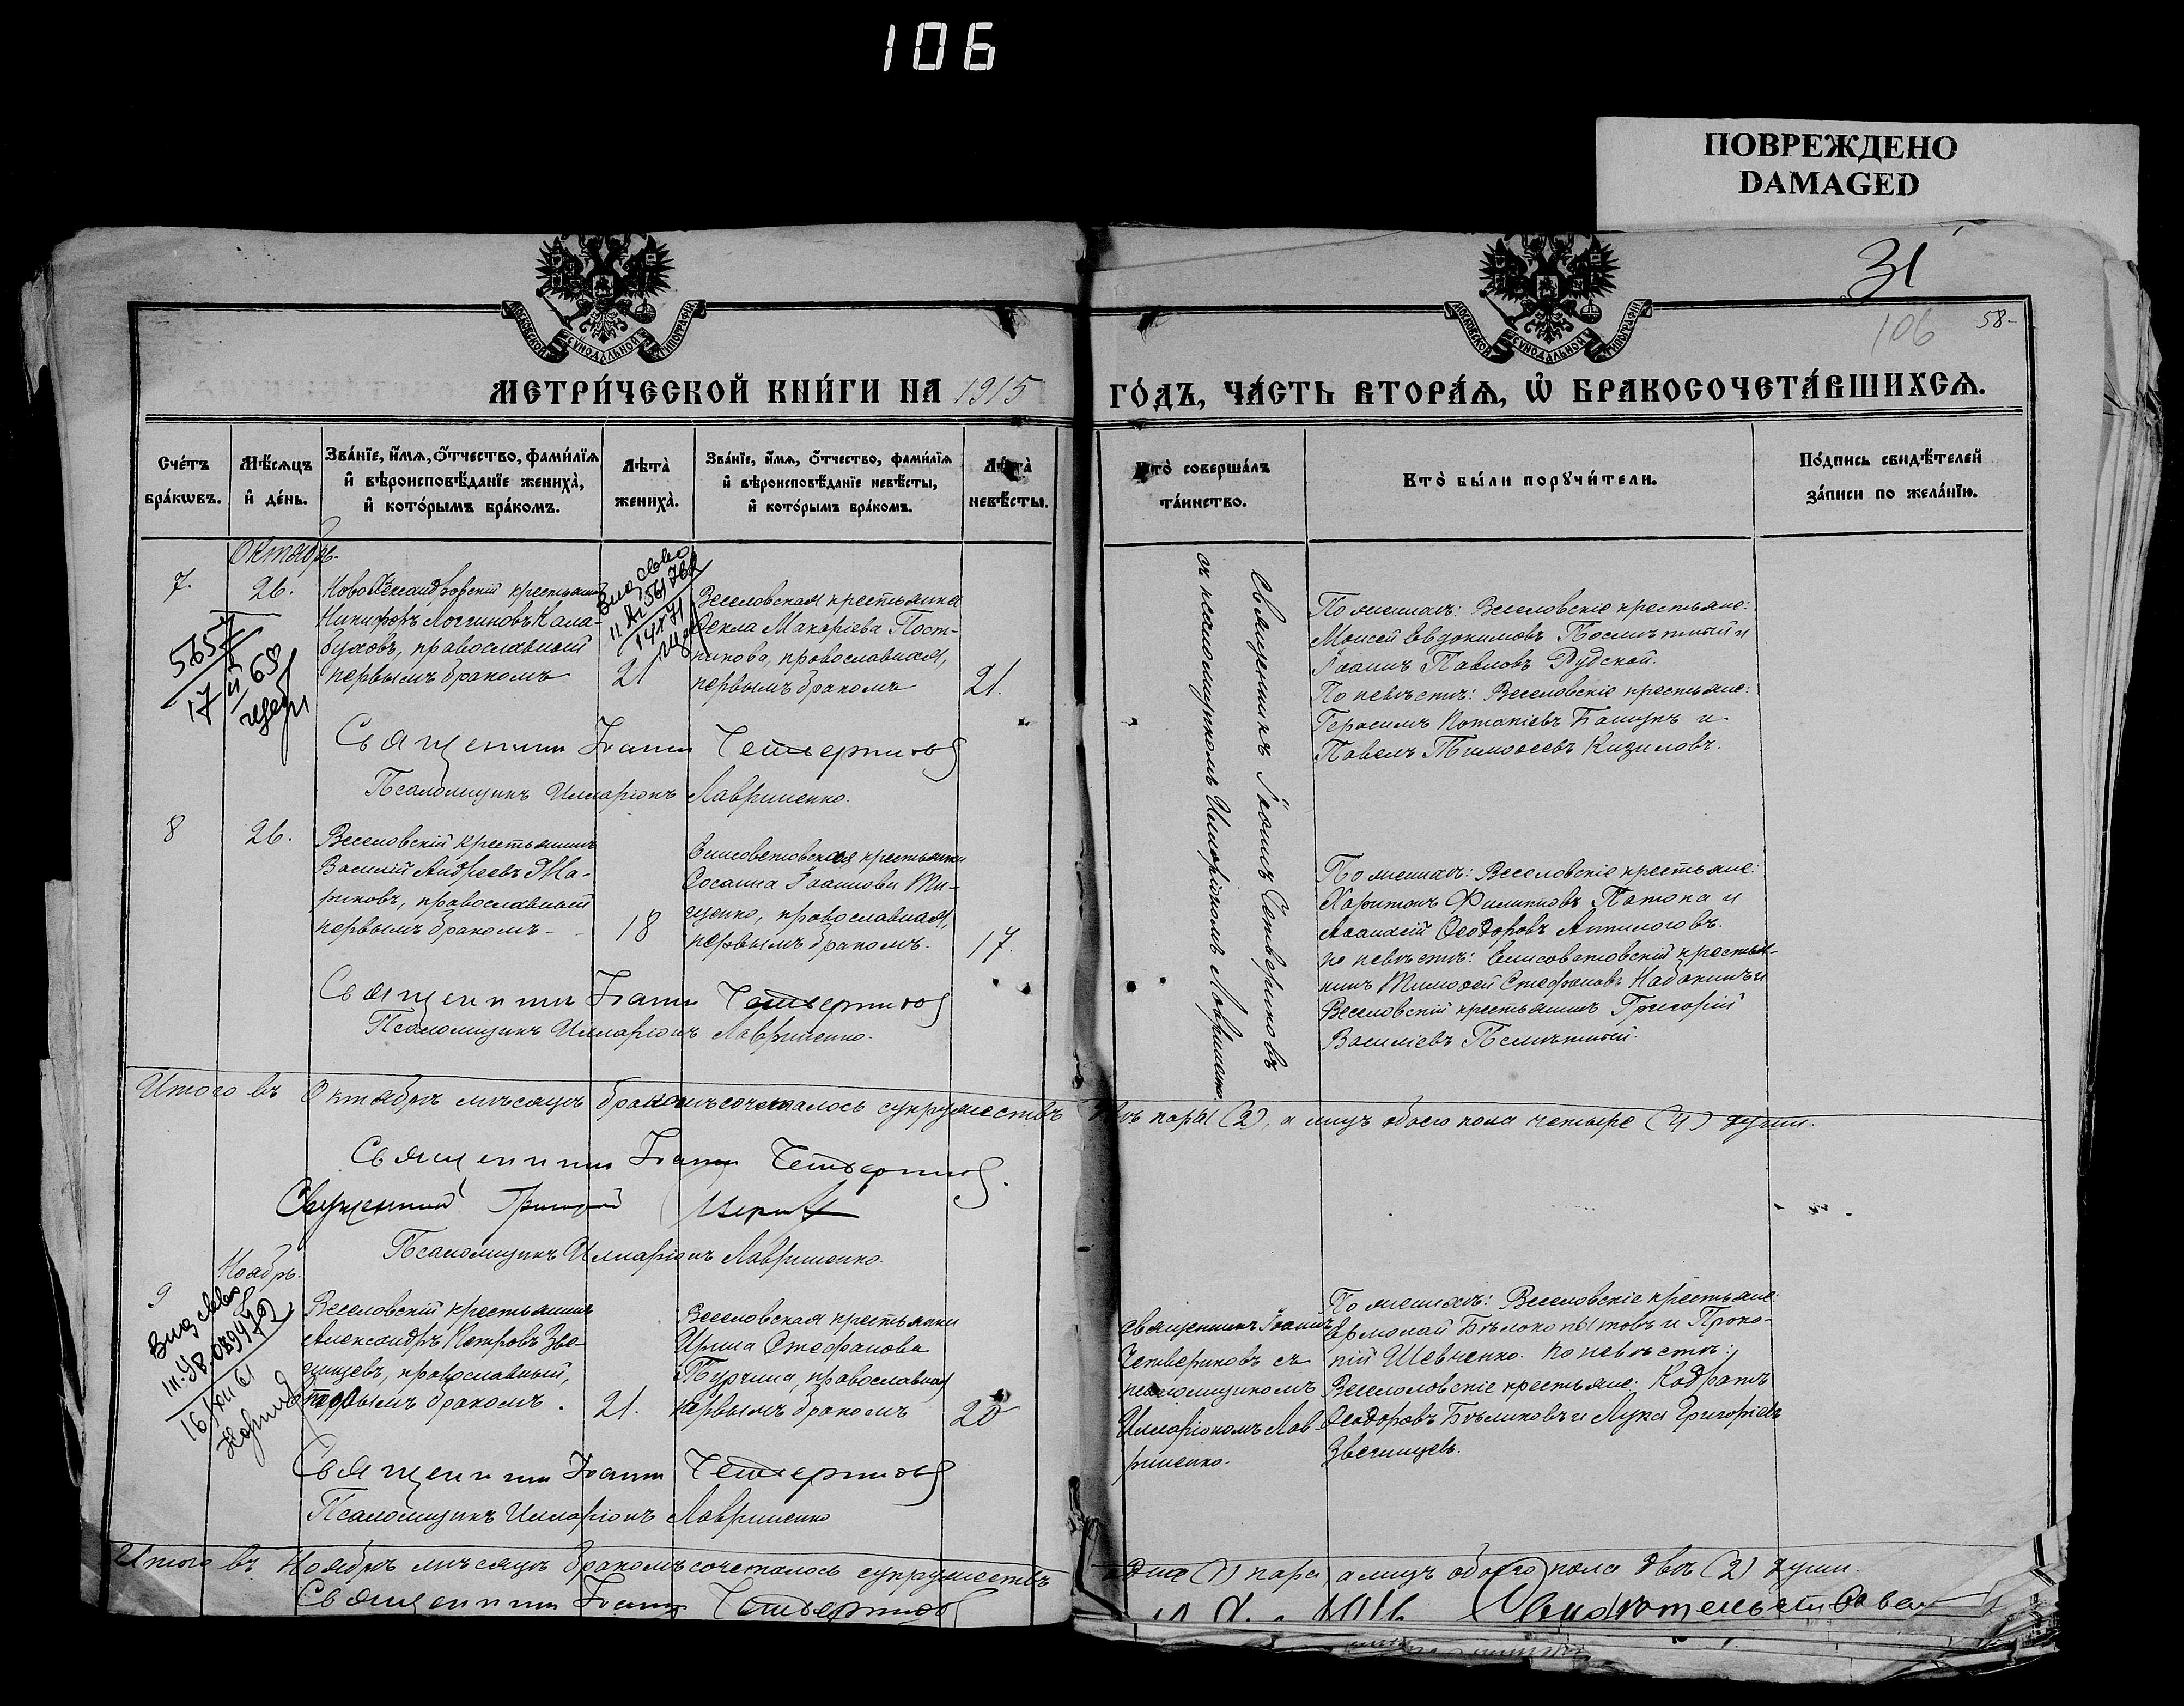 106
ПОВРЕЖДЕНО
DAMAGED
31
106
58-
МОСКОВСКОЙ СѴНОДАЛЬНОЙ ТИПОГРАФІИ
МОСКОВСКОЙ СѴНОДАЛЬНОЙ ТИПОГРАФІИ
МЕТРИ́ЧЕСКОЙ КНИ́ГИ НА 1915
ГО́ДЪ, ЧА́СТЬ ВТОРА́Ѧ, Ѡ҆ БРАКОСОЧЕТА́ВШИХСѦ.
Сче́тъ бра́кѡвъ.
Мѣ́сѧцъ и҆ де́нь.
Зва́нїе, и҆́мѧ, ѻ҆́тчество, фами́лїѧ
и҆ вѣроисповѣ́данїе жениха̀,
и҆ кото́рымъ бра́комъ.
Лѣ́та жениха̀.
Зва́нїе, и҆́мѧ, ѻ҆́тчество, фами́лїѧ
и҆ вѣроисповѣ́данїе невѣ́сты,
и҆ кото́рымъ бра́комъ.
Лѣ́та невѣ́сты.
Кто̀ соверша́лъ та́инство.
Кто̀ бы́ли порꙋчи́тели.
По́дпись свидѣ́телей за́писи по жела́нїю.
Октябрь.
7.
26.
Новоалександровскій крестьянинъ
Никифоръ Логгиновъ Кала-
буховъ, православный
первымъ бракомъ
21
Веселовская крестьянка
Ѳекла Макаріева Пост-
никова, православная,
первымъ бракомъ
21.
Священникъ Іоаннъ Четвериковъ
съ псаломщикомъ Илларіономъ Лавриненко
По женихѣ: Веселовскіе крестьяне:
Моисей Евдокимовъ
Іоаннъ Павловъ Рудской.
По невѣстѣ: Веселовскіе крестьяне:
Герасимъ Потапіевъ и
Павелъ Тимоѳеевъ Кизиловъ.
Священникъ Іоаннъ Четвериковъ
Псаломщикъ Илларіонъ Лавриненко.
8
26.
Веселовскій крестьянинъ
Василій Андреевъ Ма-
риковъ, православный
первымъ бракомъ
18
Елисоветовская крестьянка
Сосанна Іоаннова Ти-
щенко, православная,
первымъ бракомъ.
17.
По женихѣ: Веселовскіе крестьяне:
Харитонъ Филипповъ Патока и
Аѳанасій Ѳеодоровъ
по невѣстѣ: Елисоветовскій крестья-
нинъ Тимоѳей Стефановъ и
Веселовскій крестьянинъ Григорій
Василіевъ
Священникъ Іоаннъ Четвериковъ
Псаломщикъ Илларіонъ Лавриненко.
Итого въ Октябрѣ мѣсяцѣ бракомъ сочеталось супружествъ двѣ пары (2), а лицъ обоего пола четыре (4) души.
Священникъ Іоаннъ Четвериковъ.
Священникъ Григорій
Псаломщикъ Илларіонъ Лавриненко.
Ноябрь.
9
8
Веселовскій крестьянинъ
Александръ Петровъ Зве-
гинцевъ, православный,
первымъ бракомъ.
21.
Веселовская крестьянка
Ирина Стефанова
Турчина, православная
первымъ бракомъ
20
Священникъ Іоаннъ
Четвериковъ съ
псаломщикомъ
Илларіономъ Лав-
риненко.
По женихѣ: Веселовскіе крестьяне:
Ермолай Бѣлокопытовъ и Проко-
пій Шевченко. По невѣстѣ:
Веселоловскіе крестьяне: Кодратъ
Ѳеодоровъ Бѣликовъ и Лука Григоріевъ
Звегинцевъ.
Священникъ Іоаннъ Четвериковъ
Псаломщикъ Илларіонъ Лавриненко
Итого въ Ноябрѣ мѣсяцѣ бракомъ сочеталось супружествъ одна (1) пара, а лицъ обоего пола двѣ (2) души.
Священникъ Іоаннъ Четвериковъ